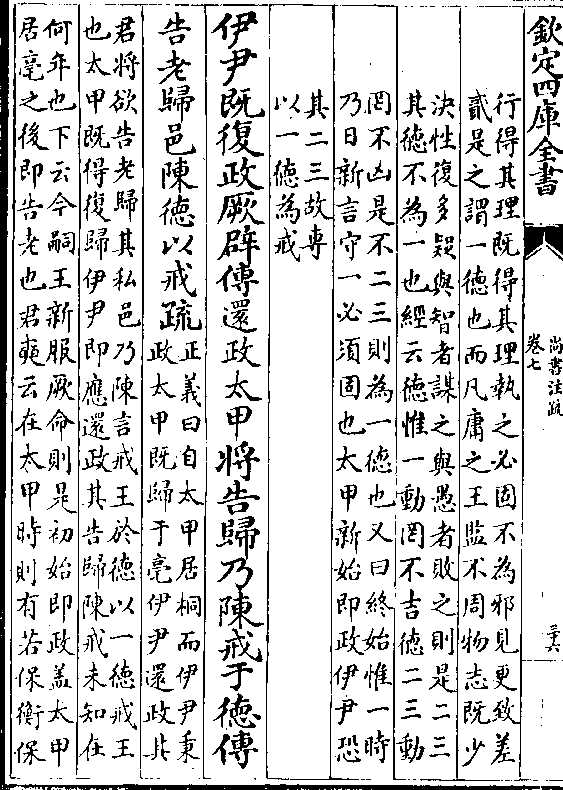 欽定四庫全書
尚書注疏
卷七
三十六
行得其理既得其理執之必固不為邪見更致差
貳是之謂一德也而凡庸之王監不周物志既少
決性復多疑與智者謀之與愚者敗之則是二三
其德不為一也經云德惟一動罔不吉德二三動
罔不凶是不二三則為一德也又曰終始惟一時
乃日新言守一必須固也太甲新始即政伊尹恐
其二三故專
以一德為戒
伊尹既復政厥辟傳還政太甲將告歸乃陳戒于德傳
告老歸邑陳德以戒疏
正義曰自太甲居桐而伊尹秉
政太甲既歸于亳伊尹還政其
君將欲告老歸其私邑乃陳言戒王於德以一德戒王
也太甲既得復歸伊尹即應還政其告歸陳戒未知在
何年也下云今嗣王新服厥命則是初始即政蓋太甲
居亳之後即告老也君奭云在太甲時則有若保衡保